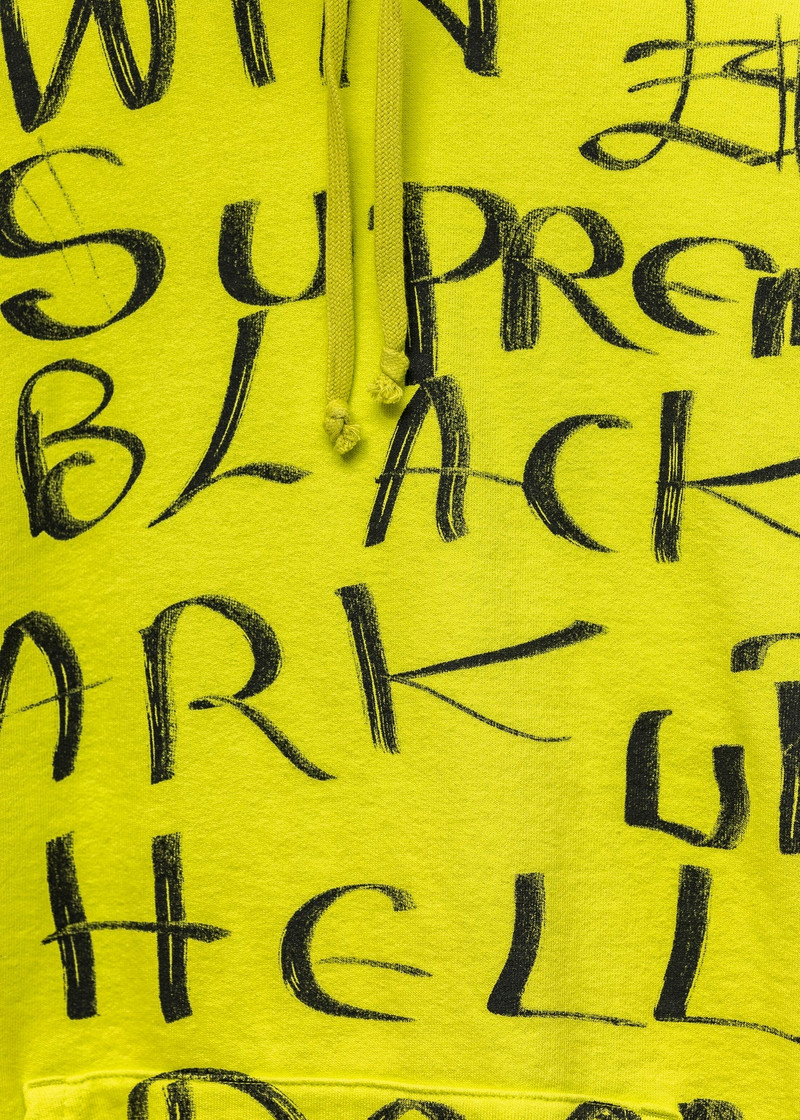 WIN
SUPREM
BLACK
ARK
U
HELL